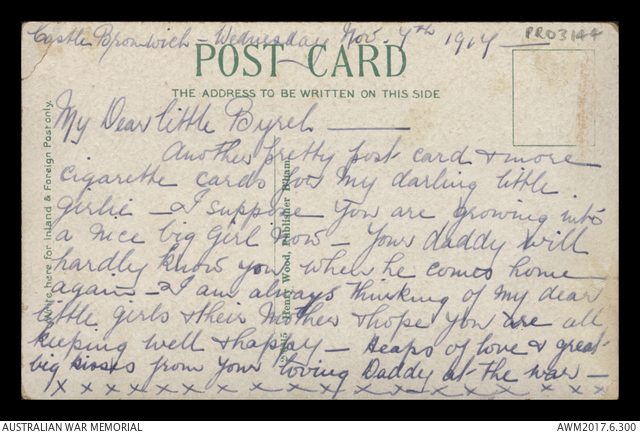 Castle Bromwich - Wednesday Nov. 7th 1917
PR03144
POST CARD
THE ADDRESS TO BE WRITTEN ON THIS SIDE
My Dear little Byrel
Another pretty post card & more
cigarette cards for my darling little
girlie - I suppose you are growing into
a nice big girl now - Your daddy will
hardly know you when he comes home
again - I am always thinking of my dear
little girls & their Mother & hope you are all
keeping well & happy - Heaps of love & great
big kisses from your loving Daddy at the war -
x x x x x x x x x x x x x x x x x
Write here for Inland & Foreign Post only.
Henry Wood, Publisher
AUSTRALIAN WAR MEMORIAL
AWM2017.6.300